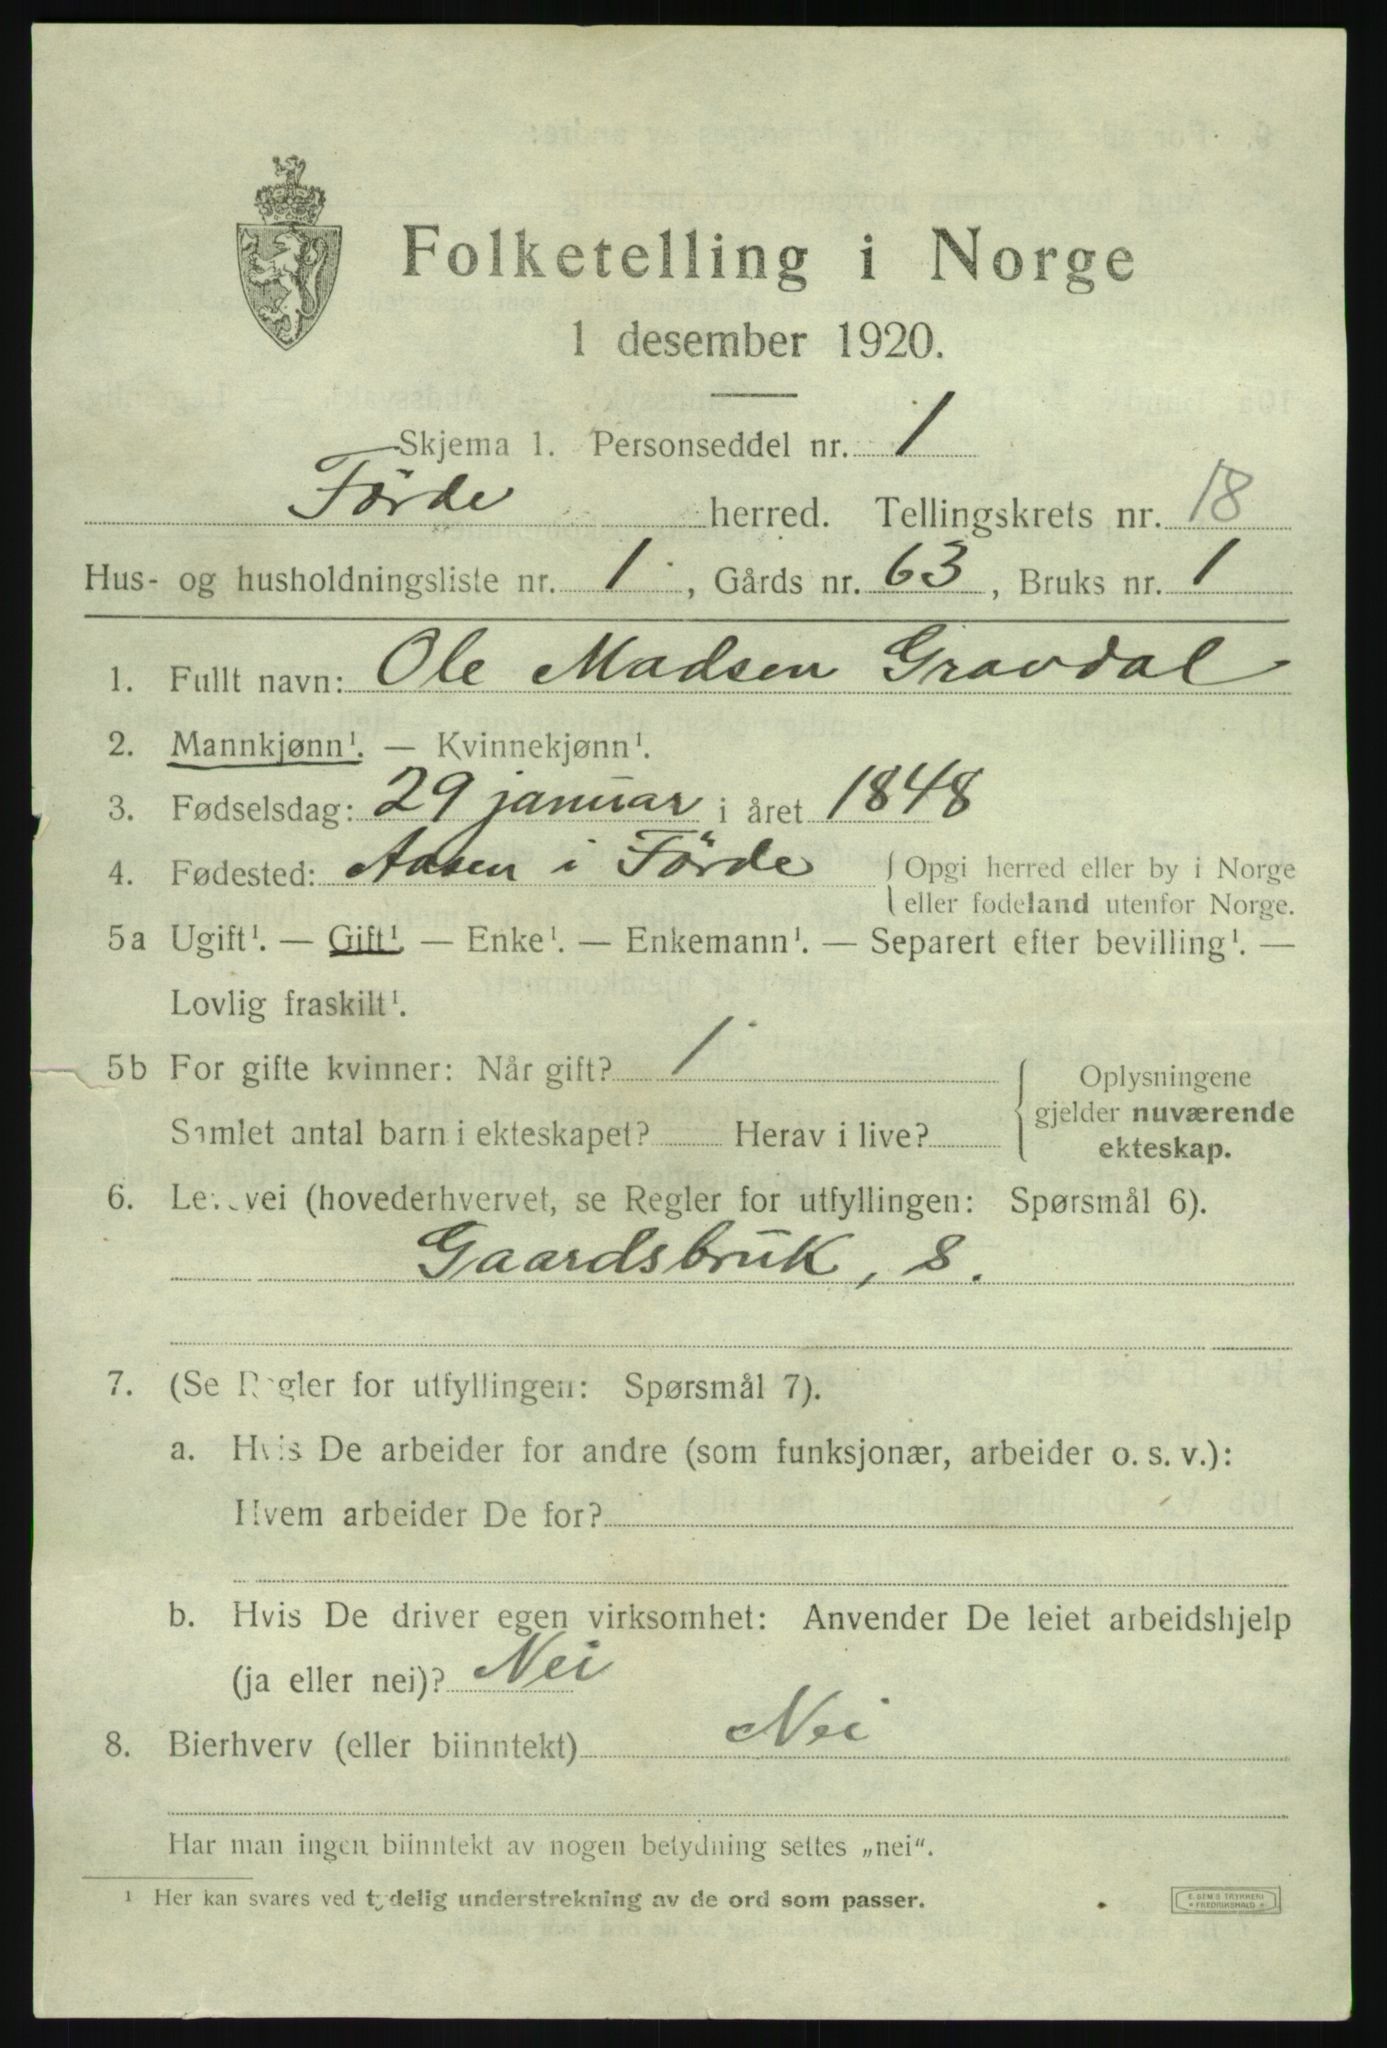 Folketelling i Norge
1 desember 1920.
Skjema 1. Personseddel nr. 1
Förde herred. Tellingskrets nr. 18
Hus- og husholdningsliste nr. 1, Gårds nr. 63, Bruks nr. 1
1. Fullt navn: Ole Madsen Gravdal
2. Mannkjønn¹. — Kvinnekjønn¹.
3. Fødselsdag: 29 januar i året 1848
4. Fødested: Aasen i Förde { Opgi herred eller by i Norge
eller fødeland utenfor Norge.
5a Ugift¹. — Gift¹. — Enke¹. — Enkemann¹. — Separert efter bevilling¹. —
Lovlig fraskilt¹.
5b For gifte kvinner: Når gift? 1
Samlet antal barn i ekteskapet? Herav i live?
Oplysningene
gjelder nuværende
ekteskap.
6. Levevei (hovederhvervet, se Regler for utfyllingen: Spørsmål 6).
Gaardsbruk, s.
7. (Se Regler for utfyllingen: Spørsmål 7).
a. Hvis De arbeider for andre (som funksjonær, arbeider o. s. v.):
Hvem arbeider De for?
b. Hvis De driver egen virksomhet: Anvender De leiet arbeidshjelp
(ja eller nei)? Nei
8. Bierhverv (eller biinntekt) Nei
Har man ingen biinntekt av nogen betydning settes „nei“.
¹ Her kan svares ved tydelig understrekning av de ord som passer.
E. SEM'S TRYKKERI
* FREDRIKSHALD *